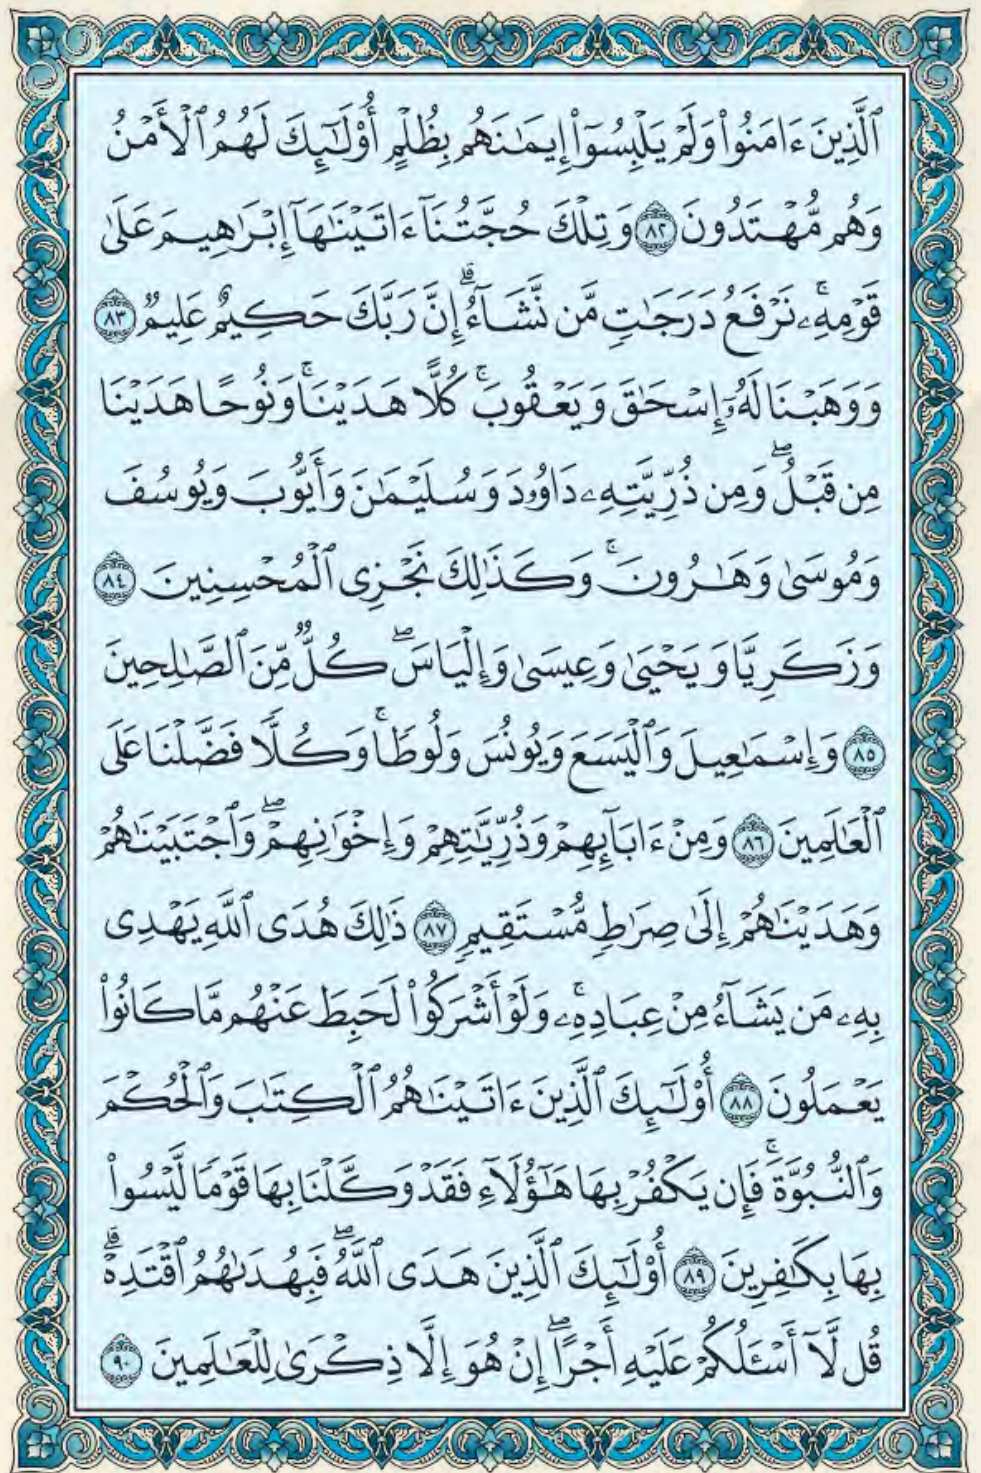 ٱلَّذِينَ ءَامَنُوا۟ وَلَمْ يَلْبِسُوٓا۟ إِيمَٰنَهُم بِظُلْمٍ أُو۟لَٰٓئِكَ لَهُمُ ٱلْأَمْنُ
وَهُم مُّهْتَدُونَ ٨٢ وَتِلْكَ حُجَّتُنَآ ءَاتَيْنَٰهَآ إِبْرَٰهِيمَ عَلَىٰ
قَوْمِهِۦۚ نَرْفَعُ دَرَجَٰتٍ مَّن نَّشَآءُۗ إِنَّ رَبَّكَ حَكِيمٌ عَلِيمٌ ٨٣
وَوَهَبْنَا لَهُۥٓ إِسْحَٰقَ وَيَعْقُوبَۚ كُلًّا هَدَيْنَاۚ وَنُوحًا هَدَيْنَا
مِن قَبْلُۖ وَمِن ذُرِّيَّتِهِۦ دَاوُۥدَ وَسُلَيْمَٰنَ وَأَيُّوبَ وَيُوسُفَ
وَمُوسَىٰ وَهَٰرُونَۚ وَكَذَٰلِكَ نَجْزِى ٱلْمُحْسِنِينَ ٨٤
وَزَكَرِيَّا وَيَحْيَىٰ وَعِيسَىٰ وَإِلْيَاسَۖ كُلٌّ مِّنَ ٱلصَّٰلِحِينَ
٨٥ وَإِسْمَٰعِيلَ وَٱلْيَسَعَ وَيُونُسَ وَلُوطًاۚ وَكُلًّا فَضَّلْنَا عَلَى
ٱلْعَٰلَمِينَ ٨٦ وَمِنْ ءَابَآئِهِمْ وَذُرِّيَّٰتِهِمْ وَإِخْوَٰنِهِمْۖ وَٱجْتَبَيْنَٰهُمْ
وَهَدَيْنَٰهُمْ إِلَىٰ صِرَٰطٍ مُّسْتَقِيمٍ ٨٧ ذَٰلِكَ هُدَى ٱللَّهِ يَهْدِى
بِهِۦ مَن يَشَآءُ مِنْ عِبَادِهِۦۚ وَلَوْ أَشْرَكُوا۟ لَحَبِطَ عَنْهُم مَّا كَانُوا۟
يَعْمَلُونَ ٨٨ أُو۟لَٰٓئِكَ ٱلَّذِينَ ءَاتَيْنَٰهُمُ ٱلْكِتَٰبَ وَٱلْحُكْمَ
وَٱلنُّبُوَّةَۚ فَإِن يَكْفُرْ بِهَا هَٰٓؤُلَآءِ فَقَدْ وَكَّلْنَا بِهَا قَوْمًا لَّيْسُوا۟
بِهَا بِكَٰفِرِينَ ٨٩ أُو۟لَٰٓئِكَ ٱلَّذِينَ هَدَى ٱللَّهُۖ فَبِهُدَىٰهُمُ ٱقْتَدِهْۗ
قُل لَّآ أَسْـَٔلُكُمْ عَلَيْهِ أَجْرًاۖ إِنْ هُوَ إِلَّا ذِكْرَىٰ لِلْعَٰلَمِينَ ٩٠